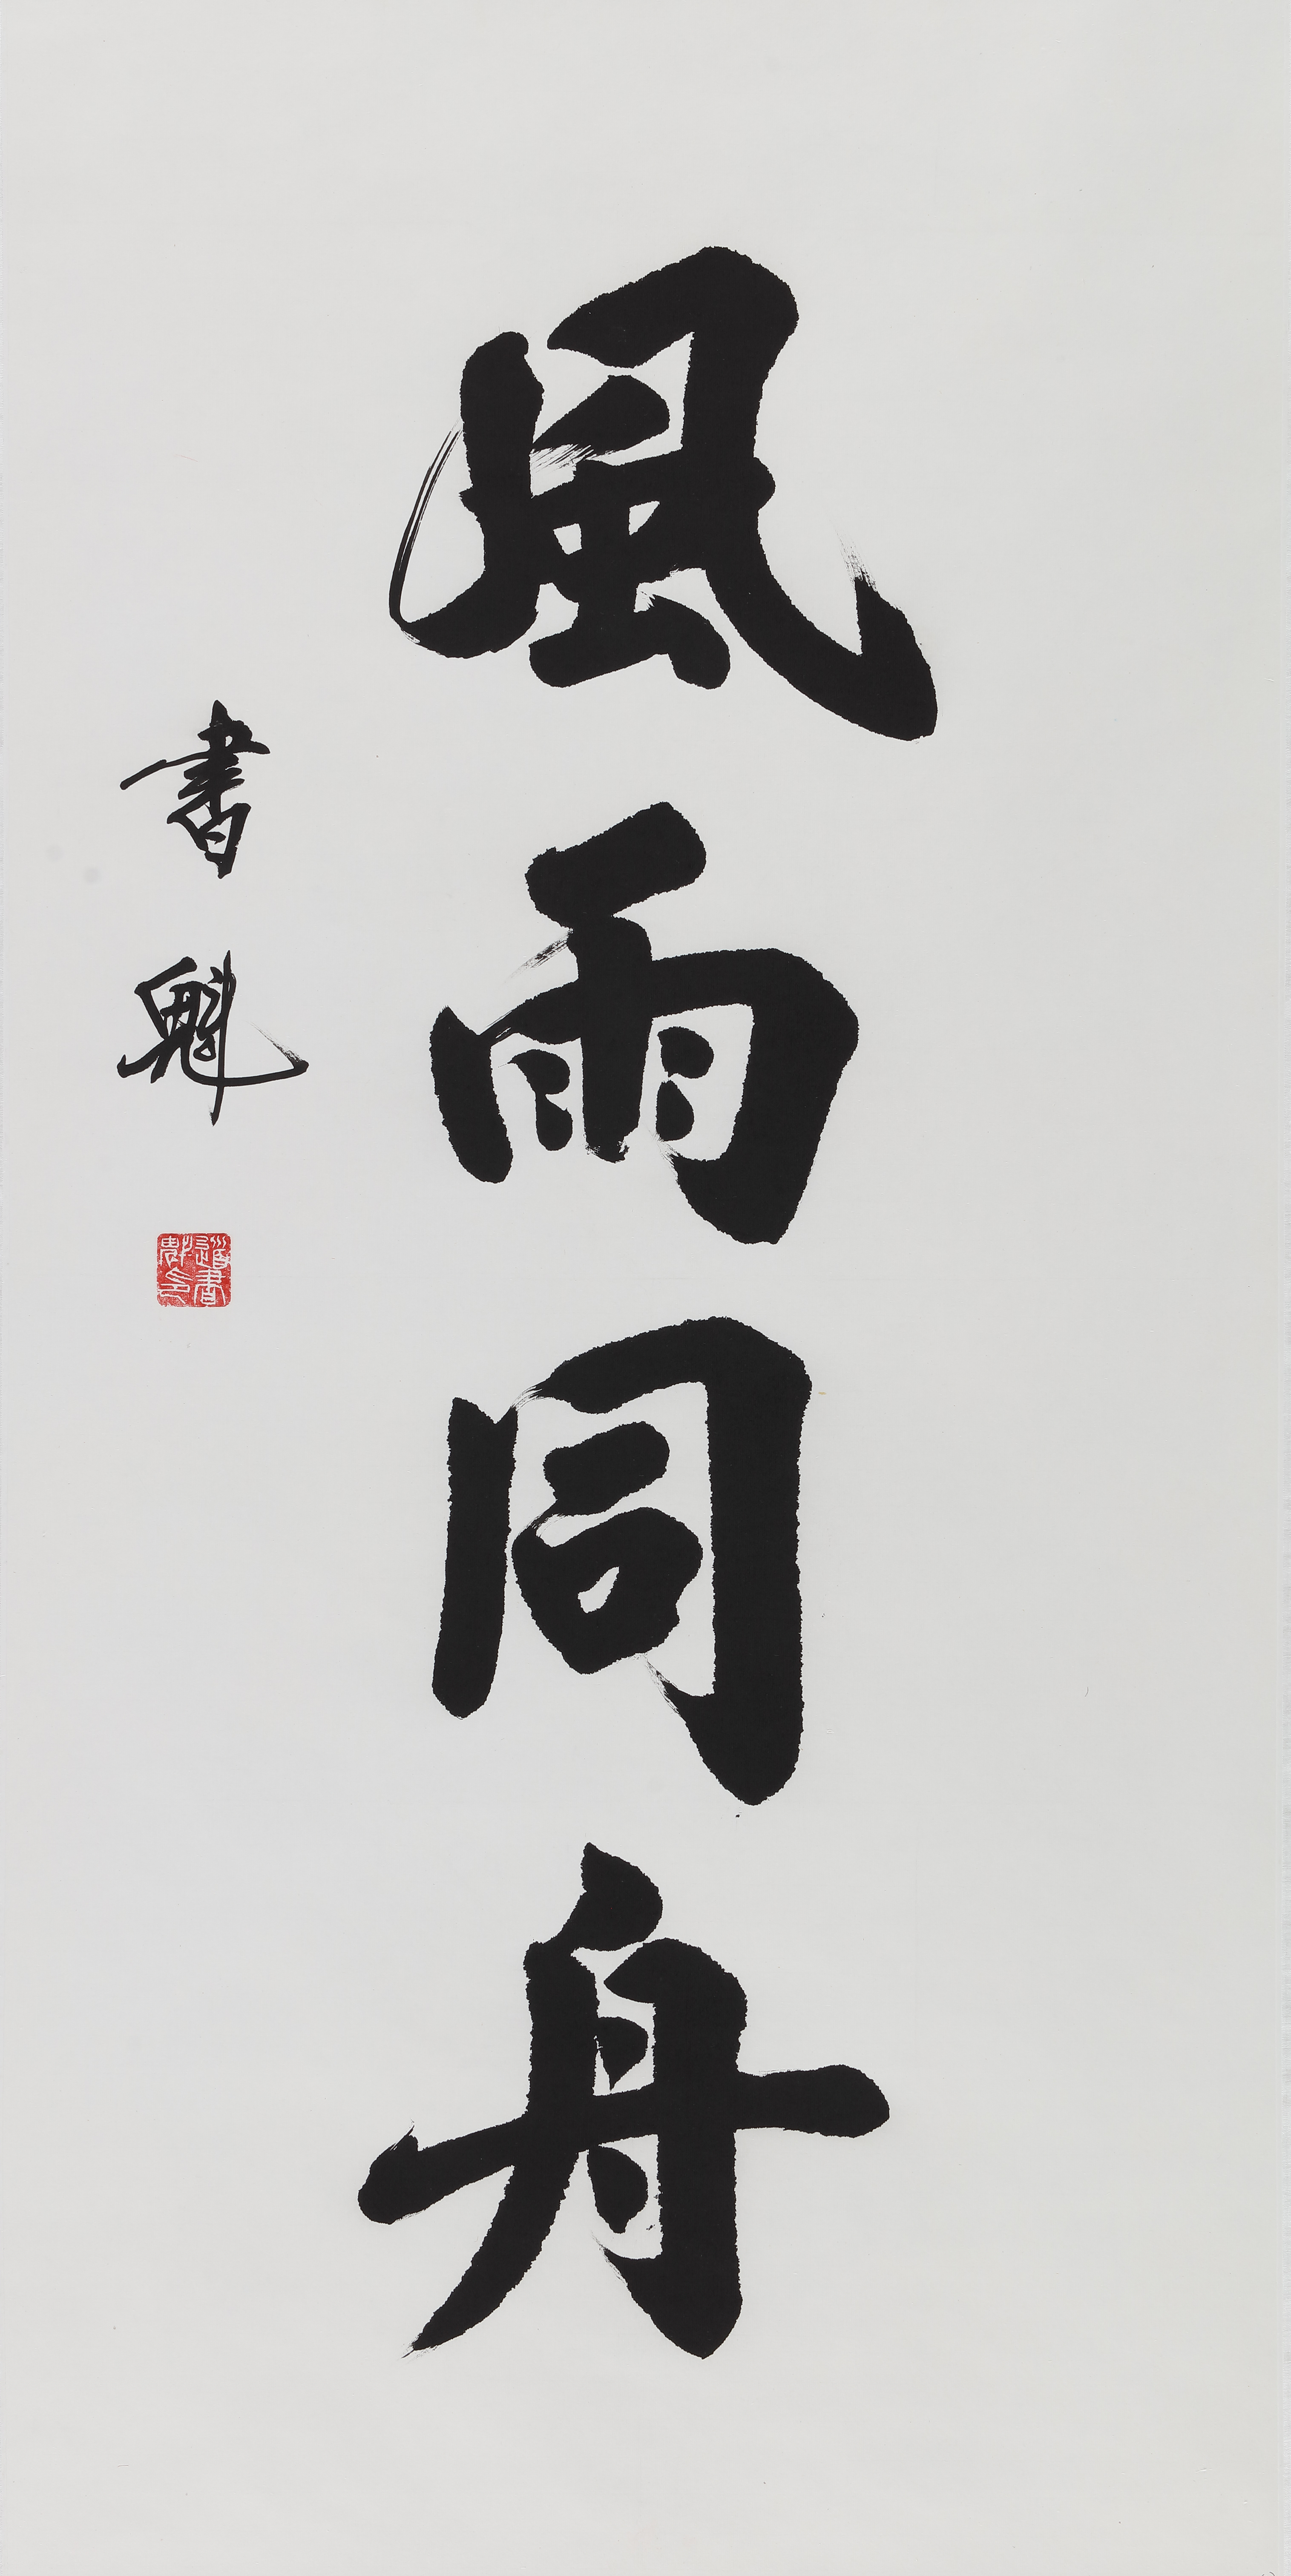 風雨同舟
書魁